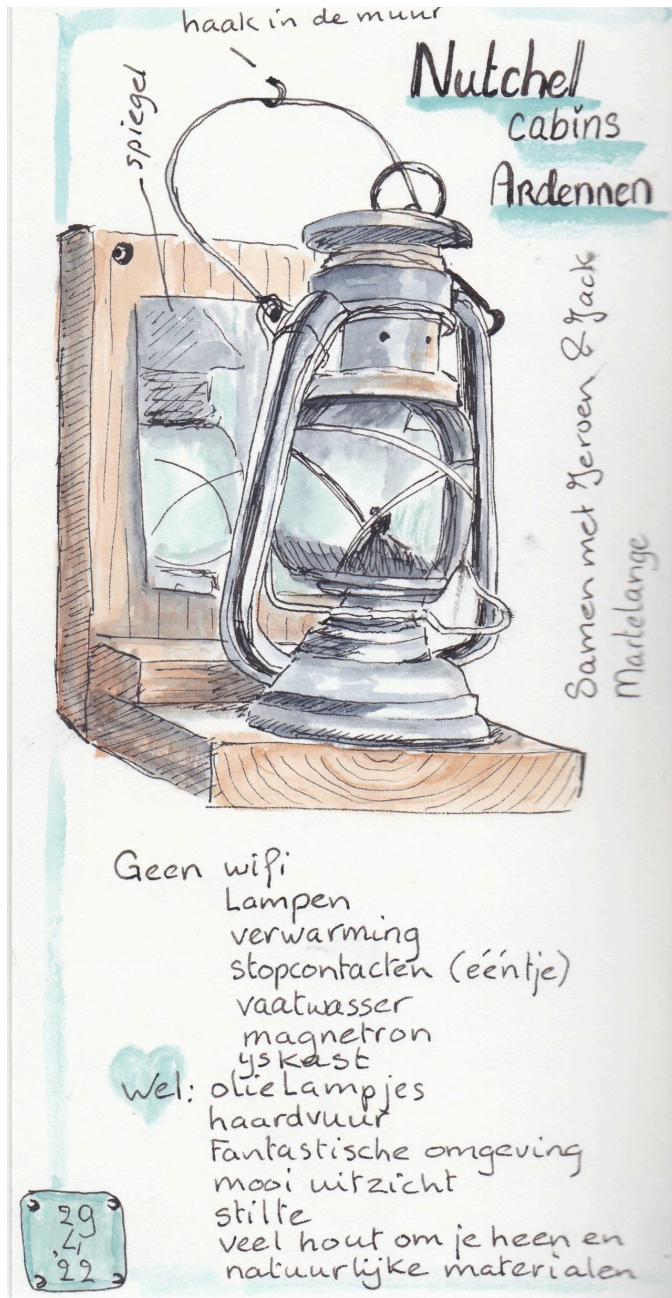 haak in de muur
spiegel
Nutchel
cabins
Ardennen
Samen met Jeroen & Jack
Martelange
Geen wifi
Lampen
verwarming
stopcontacten (ééntje)
vaatwasser
magnetron
ijskast
Wel: olielampjes
haardvuur
Fantastische omgeving
mooi uitzicht
stilte
veel hout om je heen en
natuurlijke materialen
29
4,
'22